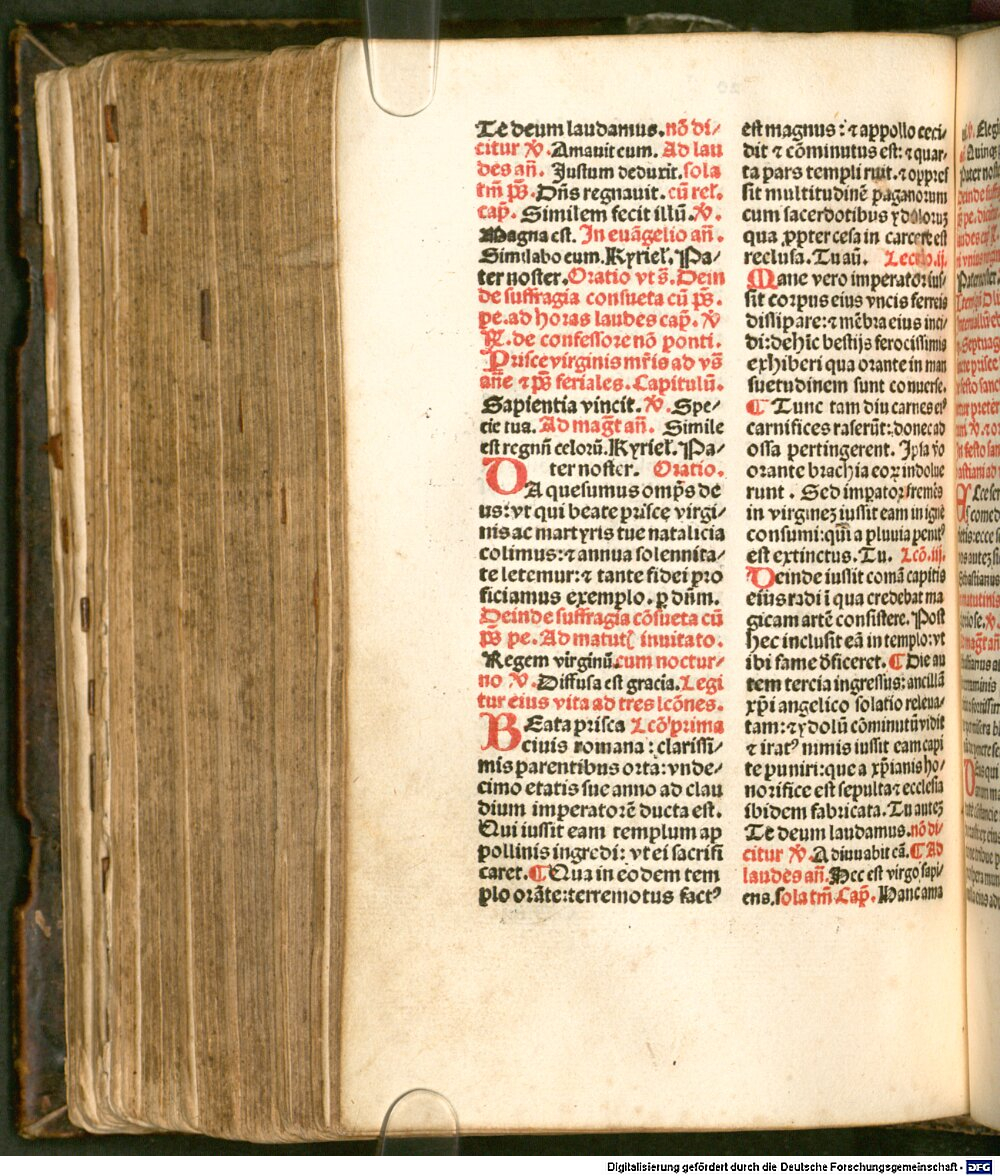 Te deum laudamus. nō di/
citur ꝟ. Amavit eum. Ad lau
des añ. Justum deduxit. sola
tm̄ ps̄. Dn̄s regnauit. cū rel.
cap̄. Similem fecit illū. ꝟ.
Magna est. In euāgelio añ.
Similabo eum. Kyriel. Pa/
ter noster. Oratio vt s̄. Dein
de suffragia consueta cū ps̄.
pe. ad horas laudes cap̄. ꝟ
R̄. de confessore nō ponti.
Prisce virginis mr̄is ad vs̄
añe ⁊ ps̄ feriales. Capitulū.
Sapientia vincit. ꝟ. Spe/
cie tua. Ad mag̃t añ. Simile
est regnū celorū. Kyriel. Pa/
ter noster. Oratio.
DA quesumus omp̄s de
us: vt qui beate prisce virgi/
nis ac martyris tue natalicia
colimus: ⁊ annua solennita/
te letemur: ⁊ tante fidei pro
ficiamus exemplo. ꝑ dn̄m.
Deinde suffragia cōsueta cū
ps̄ pe. Ad matutꝭ inuitato.
Regem virginū. cum noctur/
no ꝟ. Diffusa est gracia. Legi
tur eius vita ad tres lcōnes.
BEata prisca Lcō prima
ciuis romana: clarissi/
mis parentibus orta: vnde/
cimo etatis sue anno ad clau
dium imperatorē ducta est.
Qui iussit eam templum ap
pollinis ingredi: vt ei sacrifi
caret. ¶ Qua in eodem tem
plo orāte: terremotus factꝰ
est magnus: ⁊ appollo ceci/
dit ⁊ cōminutus est: ⁊ quar/
ta pars templi ruit. ⁊ oppres
sit multitudinē paganorum
cum sacerdotibus ydoloruꝫ
qua ꝓpter cesa in carcere est
reclusa. Tu aū. Lectio.ij.
Mane vero imperator ius/
sit corpus eius vncis ferreis
dissipare: ⁊ mēbra eius inci/
di: dehīc bestijs ferocissimis
exhiberi qua orante in man
suetudinem sunt conuerse.
¶ Tunc tam diu carnes eiꝰ
carnifices raserūt: donec ad
ossa pertingerent. Ipsa ꝟo
orante brachia eoꝝ indolue
runt. Sed imperator fremēs
in virgineꝫ iussit eam in igne
consumi: qui a pluuia penitꝰ
est extinctus. Tu. Lcō.iij.
Deinde iussit comā capitis
eius radi ī qua credebat ma
gicam artē consistere. Post
hec inclusit eā in templo: vt
ibi fame deficeret. ¶ Die au
tem tercia ingressus: ancillā
xp̄i angelico solatio releua/
tam: ⁊ ydolū cōminutū vidit
⁊ iratꝰ nimis iussit eam capi
te puniri: que a xp̄ianis ho/
norifice est sepulta ⁊ ecclesia
ibidem fabricata. Tu auteꝫ
Te deum laudamus. nō di/
citur ꝟ. Adiuuabit eā. ¶ Ad
laudes añ. Hec est virgo sapi/
ens. sola tm̄. Cap̄. Hanc ama
Digitalisierung gefördert durch die Deutsche Forschungsgemeinschaft - DFG